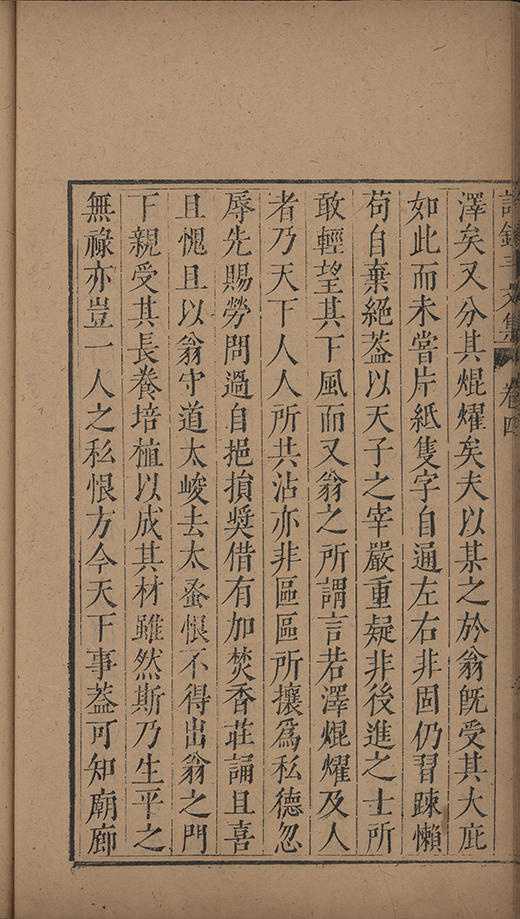 文集 卷四
澤矣又分其焜燿矣夫以某之於翁旣受其大庇
如此而未嘗片紙隻字自通左右非固仍習踈懶
苟自棄絕葢以天子之宰嚴重疑非後進之士所
敢輕望其下風而又翁之所謂言若澤焜燿及人
者乃天下人人所共沾亦非區區所攘爲私德忽
辱先賜勞問過自挹損奬借有加焚香莊誦且喜
且愧且以翁守道太峻去太蚤恨不得出翁之門
下親受其長養培植以成其材雖然斯乃生平之
無祿亦豈一人之私恨方今天下事葢可知廟廊